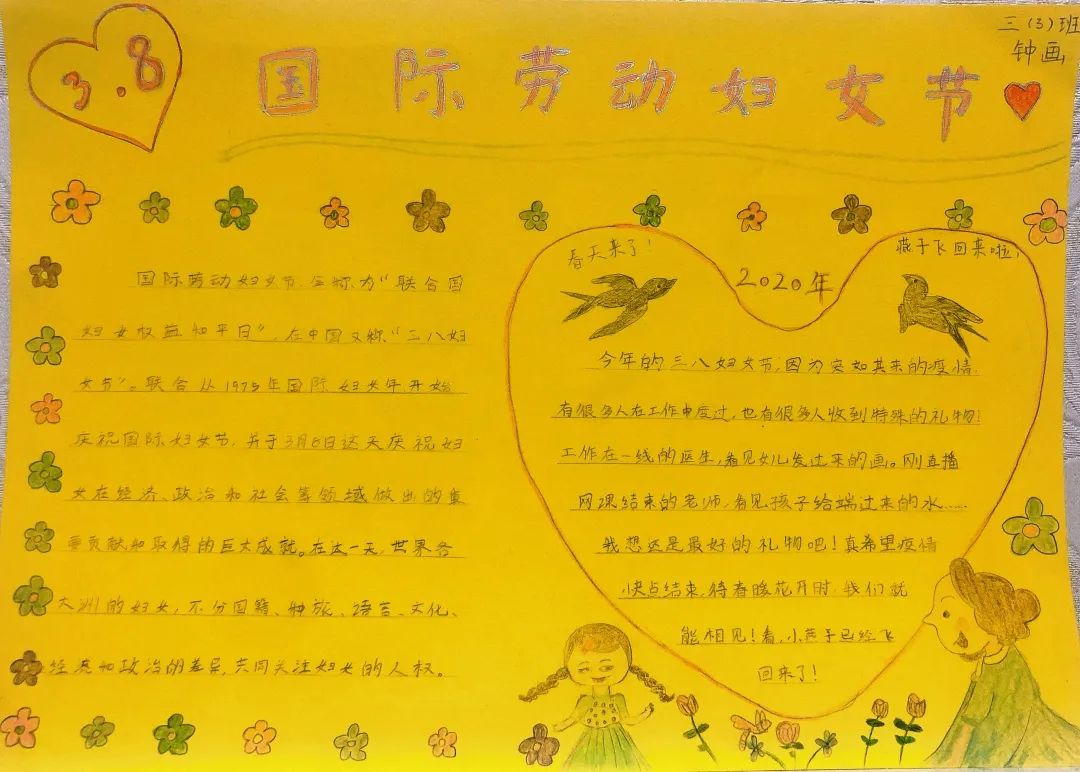 三（3）班
钟画
3.8
国际劳动妇女节
国际劳动妇女节，全称为“联合国
妇女权益和平日”，在中国又称“三八妇
女节”。联合从1975年国际妇女年开始
庆祝国际妇女节，并于3月8日这天庆祝妇
女在经济、政治和社会等领域做出的重
要贡献和取得的巨大成就。在这一天，世界各
大洲的妇女，不分国籍、种族、语言、文化、
经济和政治的差异，共同关注妇女的人权。
春天来了！
燕子飞回来啦，
2020年
今年的三八妇女节，因为突如其来的疫情，
有很多人在工作中度过，也有很多人收到特殊的礼物！
工作在一线的医生，看见女儿发过来的画。刚直播
网课结束的老师，看见孩子给端过来的水……
我想这是最好的礼物吧！真希望疫情
快点结束，待春暖花开时，我们就
能相见！看，小燕子已经飞
回来了！